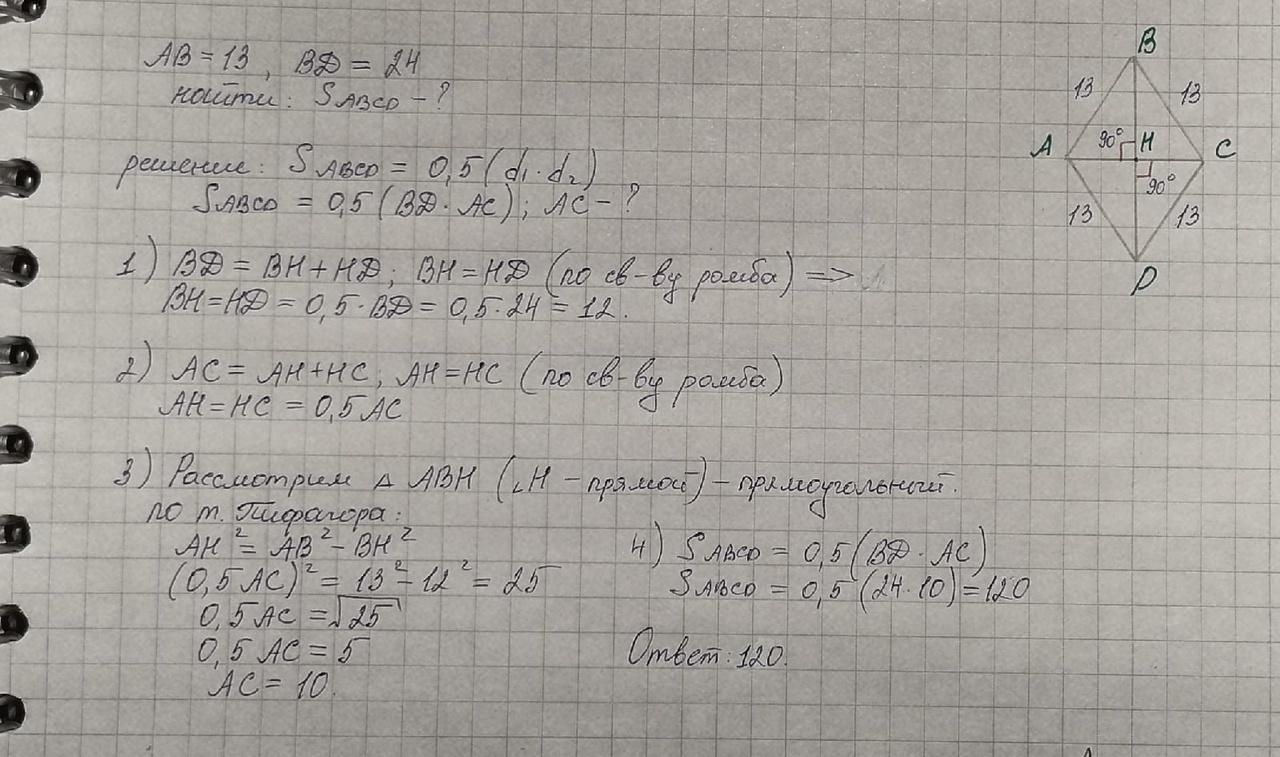 AB = 13, BD = 24
найти: SABCD - ?
решение: SABCD = 0,5 (d₁ · d₂)
SABCD = 0,5 (BD · AC); AC - ?
1) BD = BH + HD; BH = HD (по св-ву ромба) =>
BH = HD = 0,5 · BD = 0,5 · 24 = 12.
2) AC = AH + HC; AH = HC (по св-ву ромба)
AH = HC = 0,5 AC
3) Рассмотрим △ ABH (∠H - прямой) - прямоугольный.
по т. Пифагора:
AH² = AB² - BH²
(0,5 AC)² = 13² - 12² = 25
0,5 AC = √25
0,5 AC = 5
AC = 10.
4) SABCD = 0,5 (BD · AC)
SABCD = 0,5 (24 · 10) = 120
Ответ: 120.
B
13
13
90°
H
A
C
90°
13
13
D